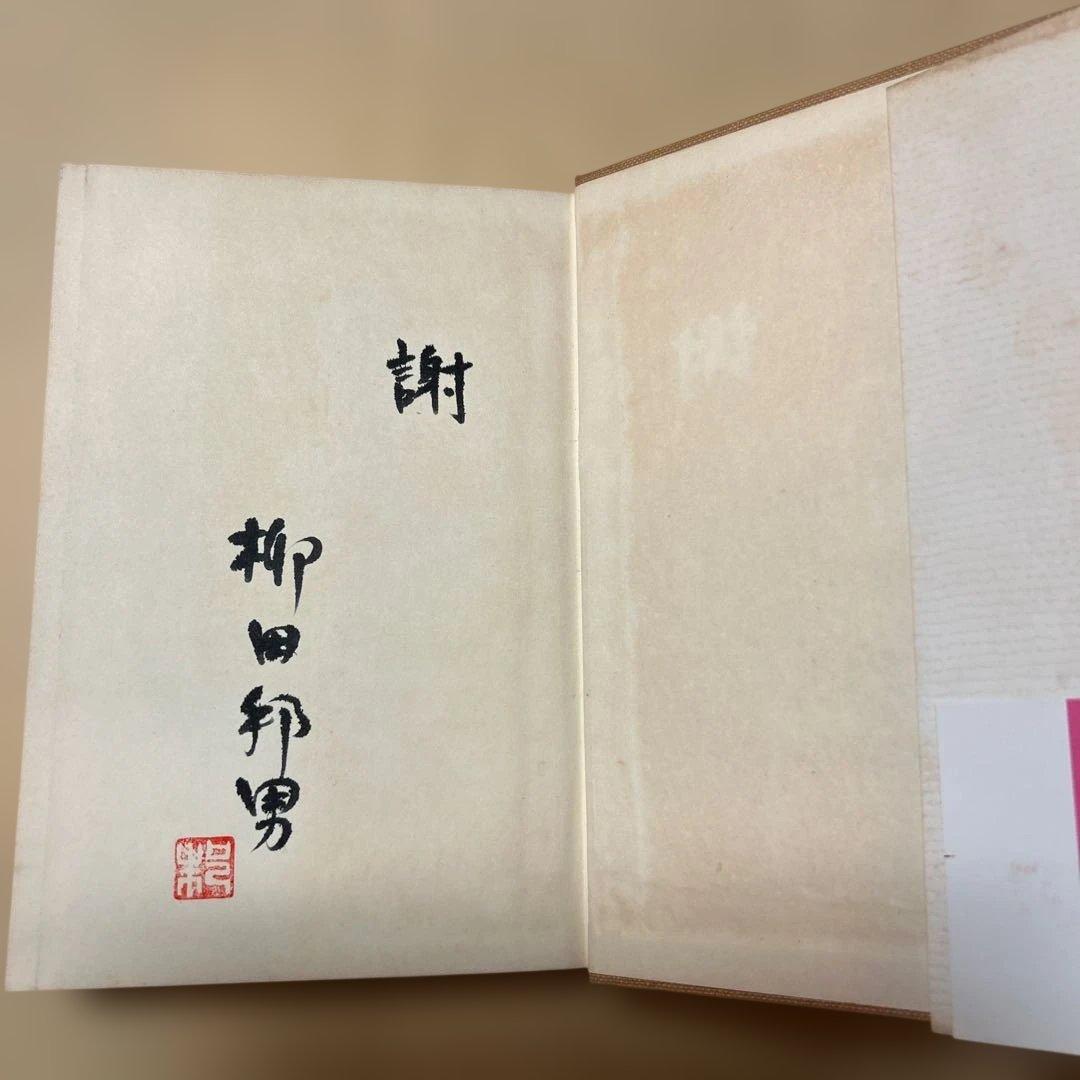 謝
柳田邦男